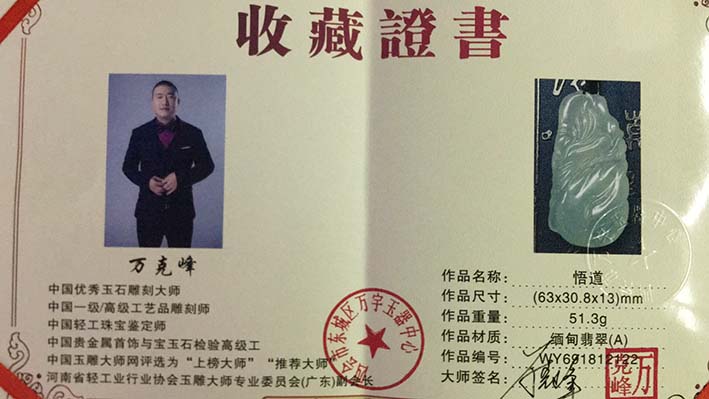 收藏證書
万克峰
中国优秀玉石雕刻大师
中国一级/高级工艺品雕刻师
中国轻工珠宝鉴定师
中国贵金属首饰与宝玉石检验高级工
中国玉雕大师网评选为“上榜大师”“推荐大师”
河南省轻工业行业协会玉雕大师专业委员会(广东)副会长
四会市东城区万字玉器中心
作品名称: 悟道
作品尺寸: (63x30.8x13)mm
作品重量: 51.3g
作品材质: 缅甸翡翠(A)
作品编号: WY691812122
大师签名:
万克峰